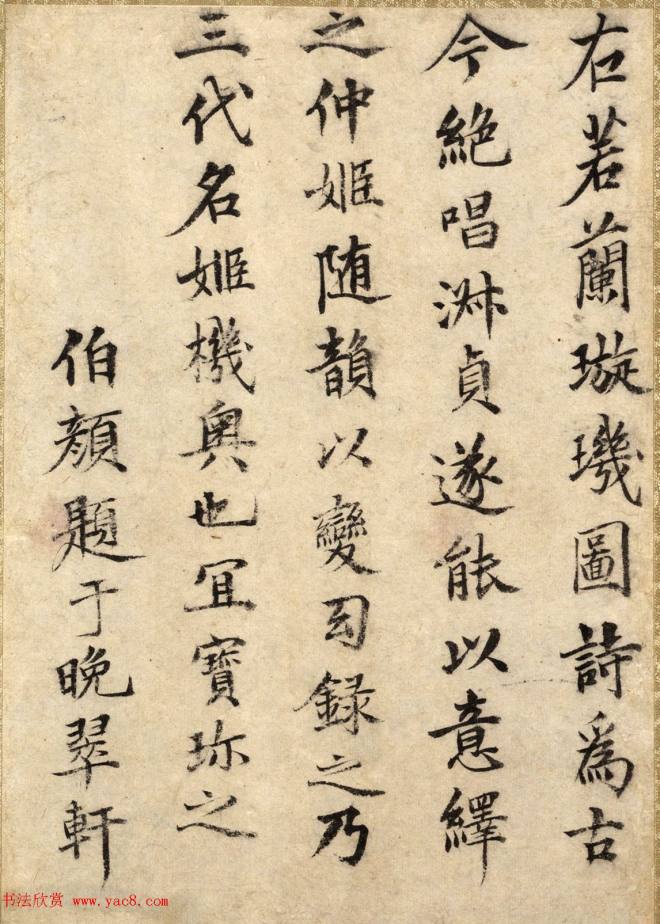 右若蘭璇璣圖詩為古
今絕唱淋貞遂能以意繹
之仲姬随韻以變司録之乃
三代名姬機奥也宜寳珎之
伯顔題于晚翠軒
书法欣赏 www.yac8.com